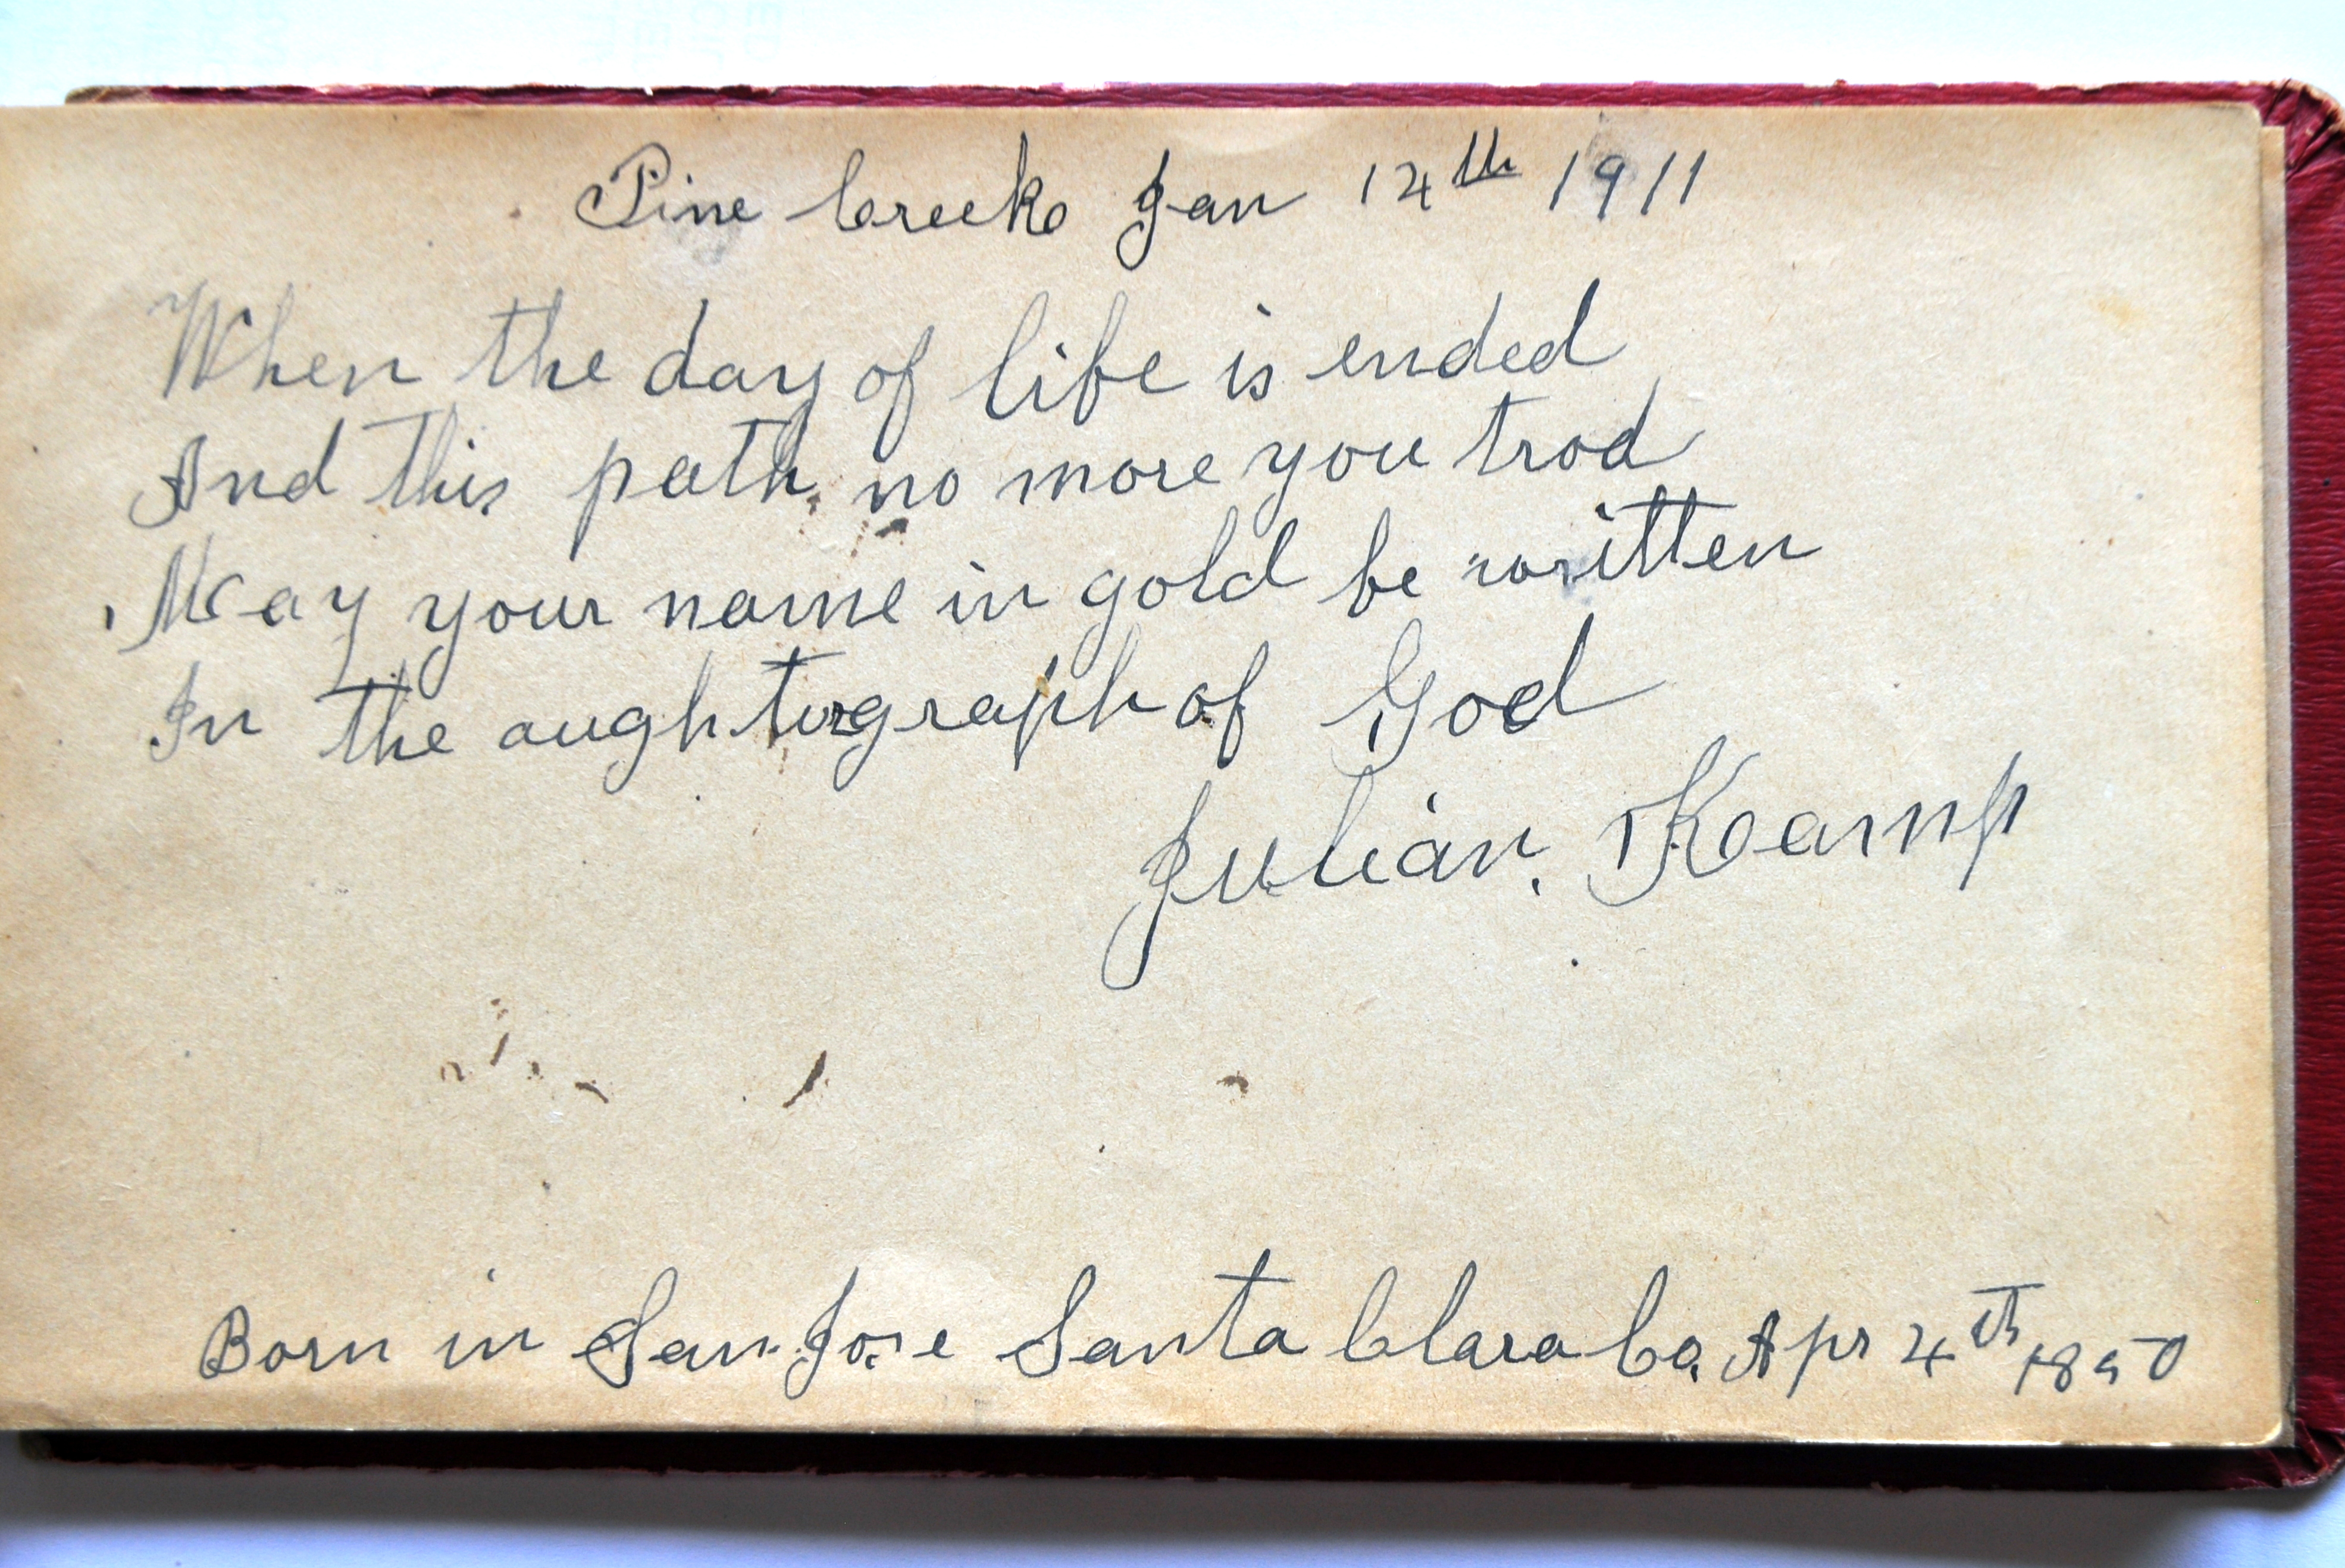 Pine Creek Jan 14th 1911
When the day of life is ended
And this path no more you trod
May your name in gold be written
In the aughtograph of God
Julian. Kamp
Born in San Jose Santa Clara Co. Apr 4th 1850